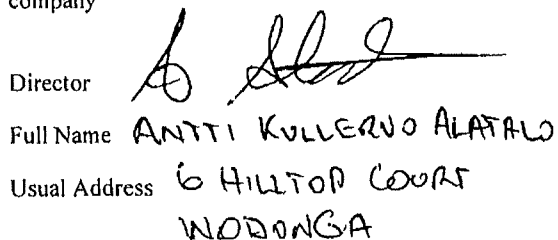 company
Director
Full Name ANTTI KULLERVO ALATALO
Usual Address 6 HILLTOP COURT
WODONGA